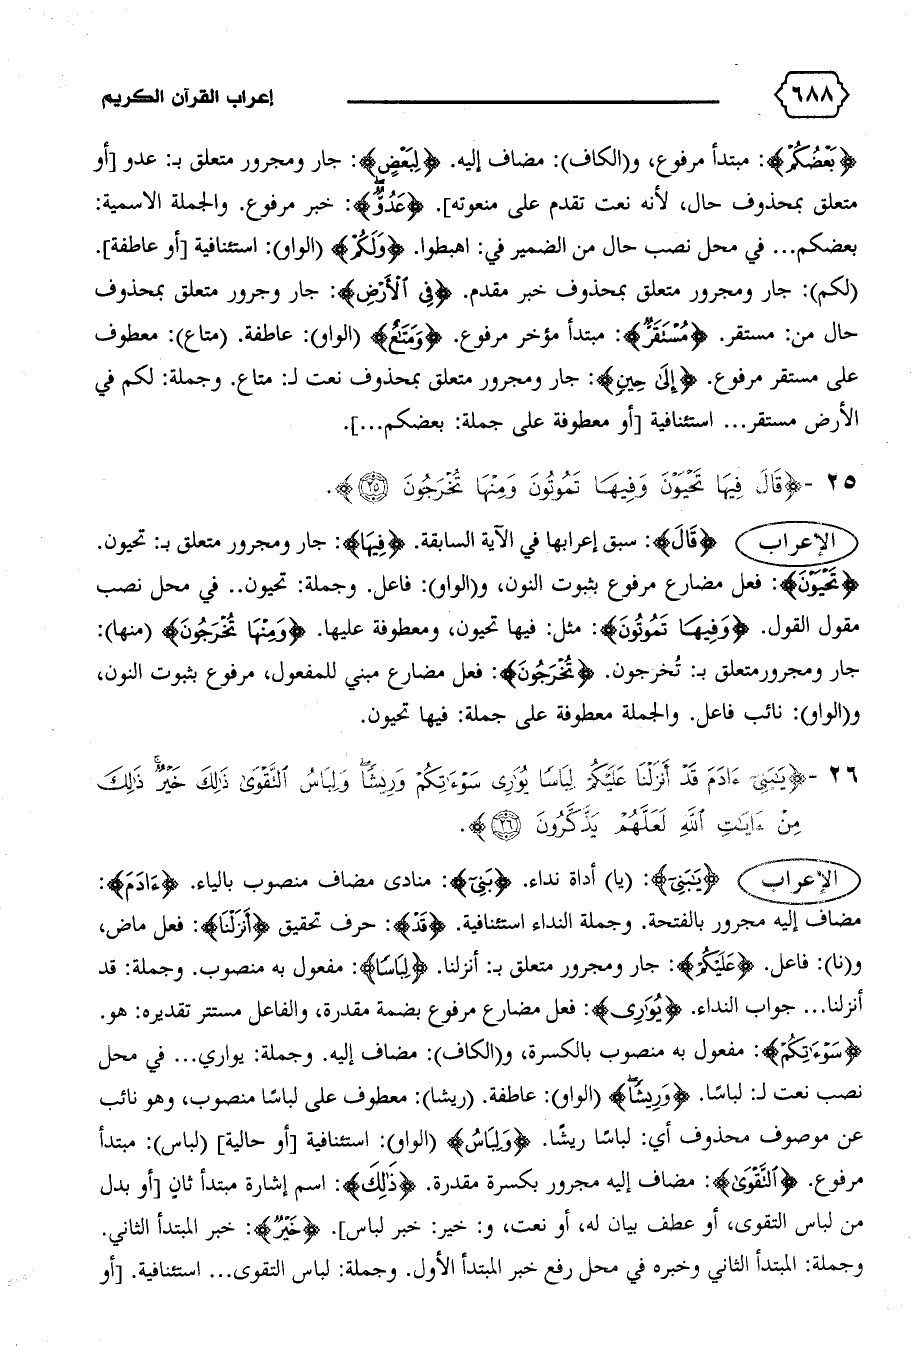 ٦٨٨
إعراب القرآن الكريم
﴿بَعْضُكُمْ﴾: مبتدأ مرفوع، و(الكاف): مضاف إليه. ﴿لِبَعْضٍ﴾: جار ومجرور متعلق بـ: عدو [أو
متعلق بمحذوف حال، لأنه نعت تقدم على منعوته]. ﴿عَدُوٌّ﴾: خبر مرفوع. والجملة الاسمية:
بعضكم... في محل نصب حال من الضمير في: اهبطوا. ﴿وَلَكُمْ﴾ (الواو): استئنافية [أو عاطفة].
(لكم): جار ومجرور متعلق بمحذوف خبر مقدم. ﴿فِي ٱلْأَرْضِ﴾: جار وجرور متعلق بمحذوف
حال من: مستقر. ﴿مُسْتَقَرٌّ﴾: مبتدأ مؤخر مرفوع. ﴿وَمَتَٰعٌ﴾ (الواو): عاطفة. (متاع): معطوف
على مستقر مرفوع. ﴿إِلَىٰ حِينٍ﴾: جار ومجرور متعلق بمحذوف نعت لـ: متاع. وجملة: لكم في
الأرض مستقر... استئنافية [أو معطوفة على جملة: بعضكم...].
٢٥ -﴿قَالَ فِيهَا تَحْيَوْنَ وَفِيهَا تَمُوتُونَ وَمِنْهَا تُخْرَجُونَ ٢٥﴾.
الإعراب ﴿قَالَ﴾: سبق إعرابها في الآية السابقة. ﴿فِيهَا﴾: جار ومجرور متعلق بـ: تحيون.
﴿تَحْيَوْنَ﴾: فعل مضارع مرفوع بثبوت النون، و(الواو): فاعل. وجملة: تحيون.. في محل نصب
مقول القول. ﴿وَفِيهَا تَمُوتُونَ﴾: مثل: فيها تحيون، ومعطوفة عليها. ﴿وَمِنْهَا تُخْرَجُونَ﴾ (منها):
جار ومجرورمتعلق بـ: تُخرجون. ﴿تُخْرَجُونَ﴾: فعل مضارع مبني للمفعول، مرفوع بثبوت النون،
و(الواو): نائب فاعل. والجملة معطوفة على جملة: فيها تحيون.
٢٦ -﴿يَٰبَنِيٓ ءَادَمَ قَدْ أَنزَلْنَا عَلَيْكُمْ لِبَاسًا يُوَٰرِي سَوْءَٰتِكُمْ وَرِيشًا ۖ وَلِبَاسُ ٱلتَّقْوَىٰ ذَٰلِكَ خَيْرٌ ۚ ذَٰلِكَ
مِنْ ءَايَٰتِ ٱللَّهِ لَعَلَّهُمْ يَذَّكَّرُونَ ٢٦﴾.
الإعراب ﴿يَٰبَنِيٓ﴾: (يا) أداة نداء. ﴿بَنِيٓ﴾: منادى مضاف منصوب بالياء. ﴿ءَادَمَ﴾:
مضاف إليه مجرور بالفتحة. وجملة النداء استئنافية. ﴿قَدْ﴾: حرف تحقيق ﴿أَنزَلْنَا﴾: فعل ماض،
و(نا): فاعل. ﴿عَلَيْكُمْ﴾: جار ومجرور متعلق بـ: أنزلنا. ﴿لِبَاسًا﴾: مفعول به منصوب. وجملة: قد
أنزلنا... جواب النداء. ﴿يُوَٰرِي﴾: فعل مضارع مرفوع بضمة مقدرة، والفاعل مستتر تقديره: هو.
﴿سَوْءَٰتِكُمْ﴾: مفعول به منصوب بالكسرة، و(الكاف): مضاف إليه. وجملة: يواري... في محل
نصب نعت لـ: لباسًا. ﴿وَرِيشًا ۖ﴾ (الواو): عاطفة. (ريشا): معطوف على لباسًا منصوب، وهو نائب
عن موصوف محذوف أي: لباسًا ريشًا. ﴿وَلِبَاسُ﴾ (الواو): استئنافية [أو حالية] (لباس): مبتدأ
مرفوع. ﴿ٱلتَّقْوَىٰ﴾: مضاف إليه مجرور بكسرة مقدرة. ﴿ذَٰلِكَ﴾: اسم إشارة مبتدأ ثانٍ [أو بدل
من لباس التقوى، أو عطف بيان له، أو نعت، و: خير: خبر لباس]. ﴿خَيْرٌ﴾: خبر المبتدأ الثاني.
وجملة: المبتدأ الثاني وخبره في محل رفع خبر المبتدأ الأول. وجملة: لباس التقوى... استئنافية. [أو